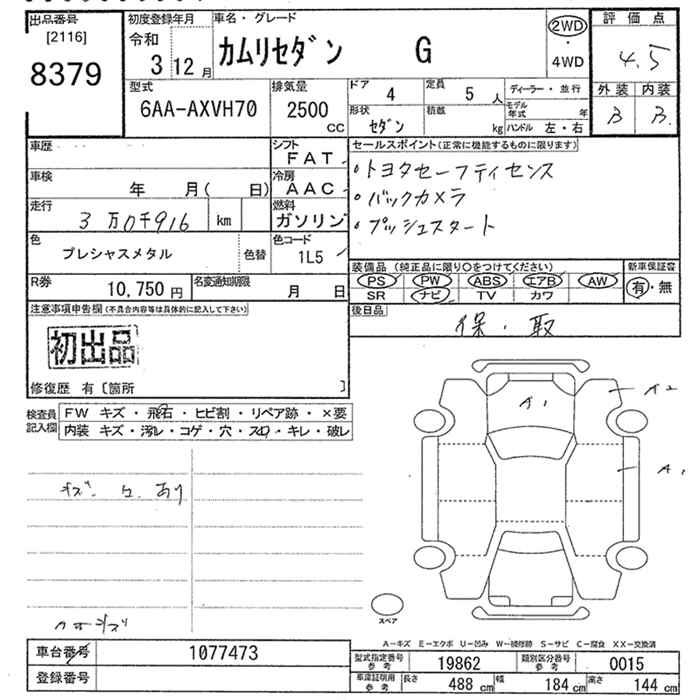 出品番号
[2116]
8379
初度登録年月
令和
3 12 月
車名・グレード
カムリセダン G
2WD
・
4WD
評価点
4.5
外装 内装
B B
型式
6AA-AXVH70
排気量
2500
CC
ドア
4
定員
5 人
形状
セダン
積載
kg
ディーラー・並行
モデル年式 年
ハンドル 左・右
車歴
シフト
FAT
車検
年 月( 日)
冷房
AAC
走行
3万0千916 km
燃料
ガソリン
色
プレシャスメタル
色替
色コード
1L5
R券
10,750 円
名変通知期限
月 日
セールスポイント(正常に機能するものに限ります)
・トヨタセーフティセンス
・バックカメラ
・プッシュスタート
装備品 (純正品に限り○をつけてください)
PS PW ABS エアB AW
SR ナビ TV カワ
新車保証書
有・無
後日品
保・取
注意事項申告欄(不具合内容等は具体的に記入して下さい)
初出品
修復歴 有〔箇所 〕
検査員
記入欄
FW キズ・飛石・ヒビ割・リペア跡・×要
内装 キズ・汚レ・コゲ・穴・スレ・キレ・破レ
あり
A1
A2
A
スペア
A－キズ E－エクボ U－凹み W－補修跡 S－サビ C－腐食 XX－交換済
車台番号
1077473
登録番号
型式指定番号
参考
19862
類別区分番号
参考
0015
車庫証明用
参考
長さ 488 cm 幅 184 cm 高さ 144 cm